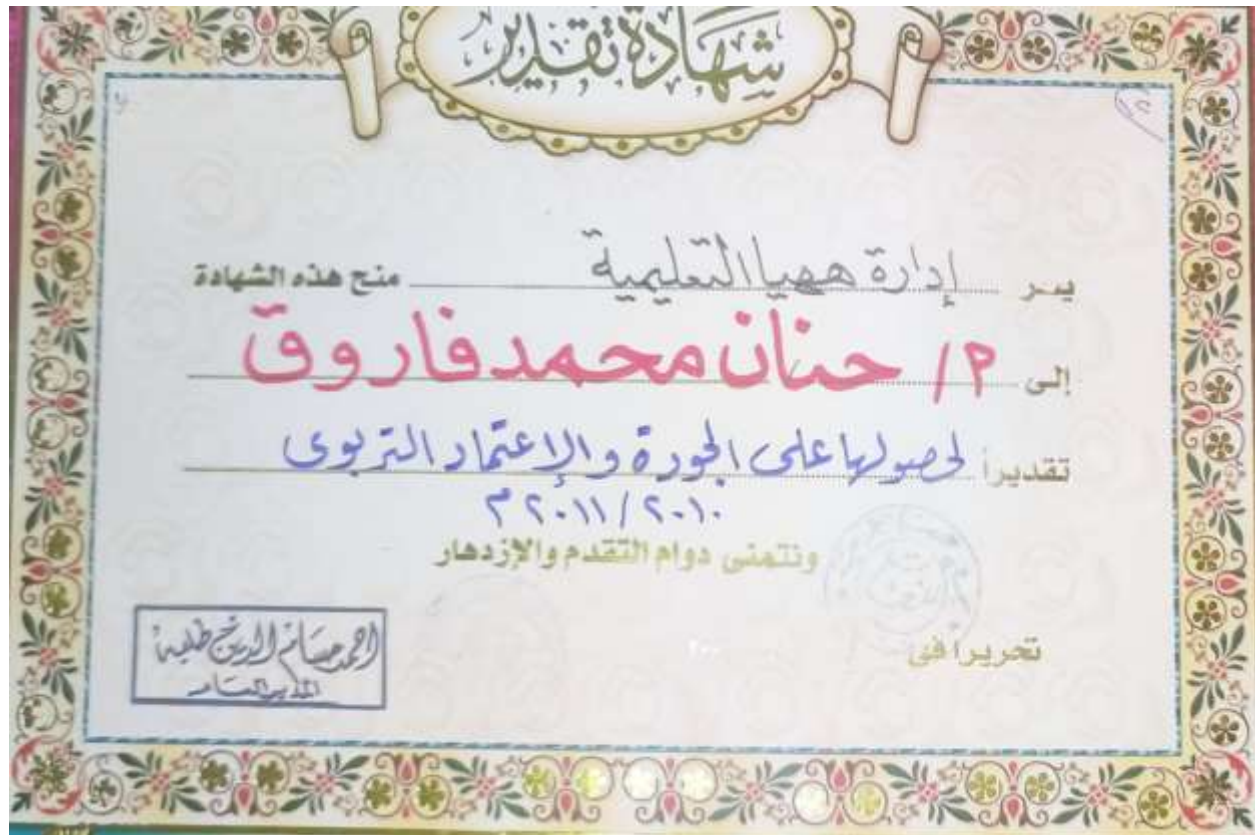 شهادة تقدير
يسر إدارة ههيا التعليمية منح هذه الشهادة
إلى م/ حنان محمد فاروق
تقديراً لحصولها على الجودة والإعتماد التربوى
٢٠١٠ / ٢٠١١ م
ونتمنى دوام التقدم والإزدهار
تحريرا فى ٢٠٠
أحمد حسام الدين طلبه
المدير العام